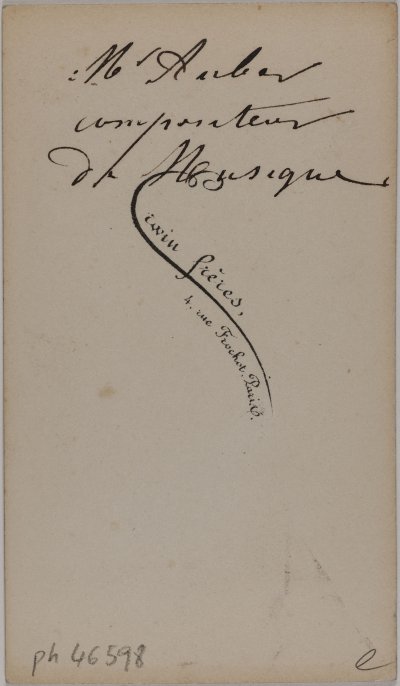 Mr Auber
compositeur
de Musique
Erwin frères,
4, rue Frochot. Paris.
ph 46598
e